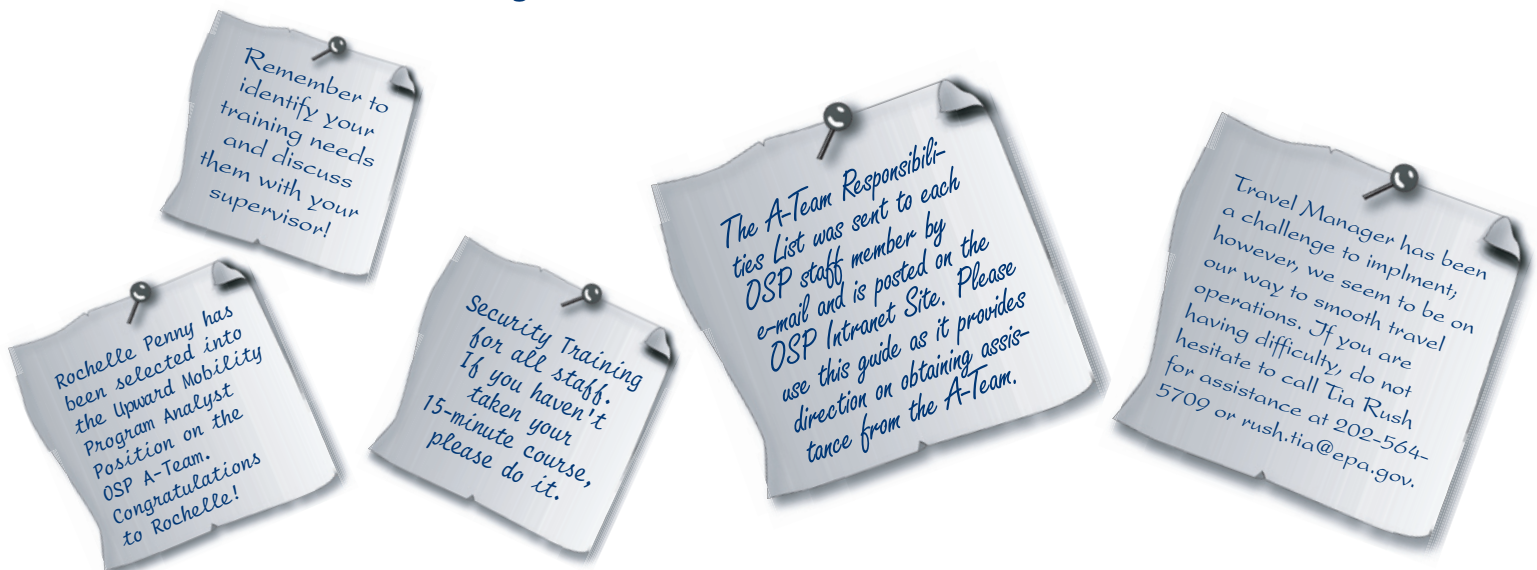 Remember to
identify your
training needs
and discuss
them with your
supervisor!
Rochelle Penny has
been selected into
the Upward Mobility
Program Analyst
Position on the
OSP A-Team.
Congratulations
to Rochelle!
Security Training
for all staff.
If you haven't
taken your
15-minute course,
please do it.
The A-Team Responsibili-
ties List was sent to each
OSP staff member by
e-mail and is posted on the
OSP Intranet Site. Please
use this guide as it provides
direction on obtaining assis-
tance from the A-Team.
Travel Manager has been
a challenge to implment;
however, we seem to be on
our way to smooth travel
operations. If you are
having difficulty, do not
hesitate to call Tia Rush
for assistance at 202-564-
5709 or rush.tia@epa.gov.